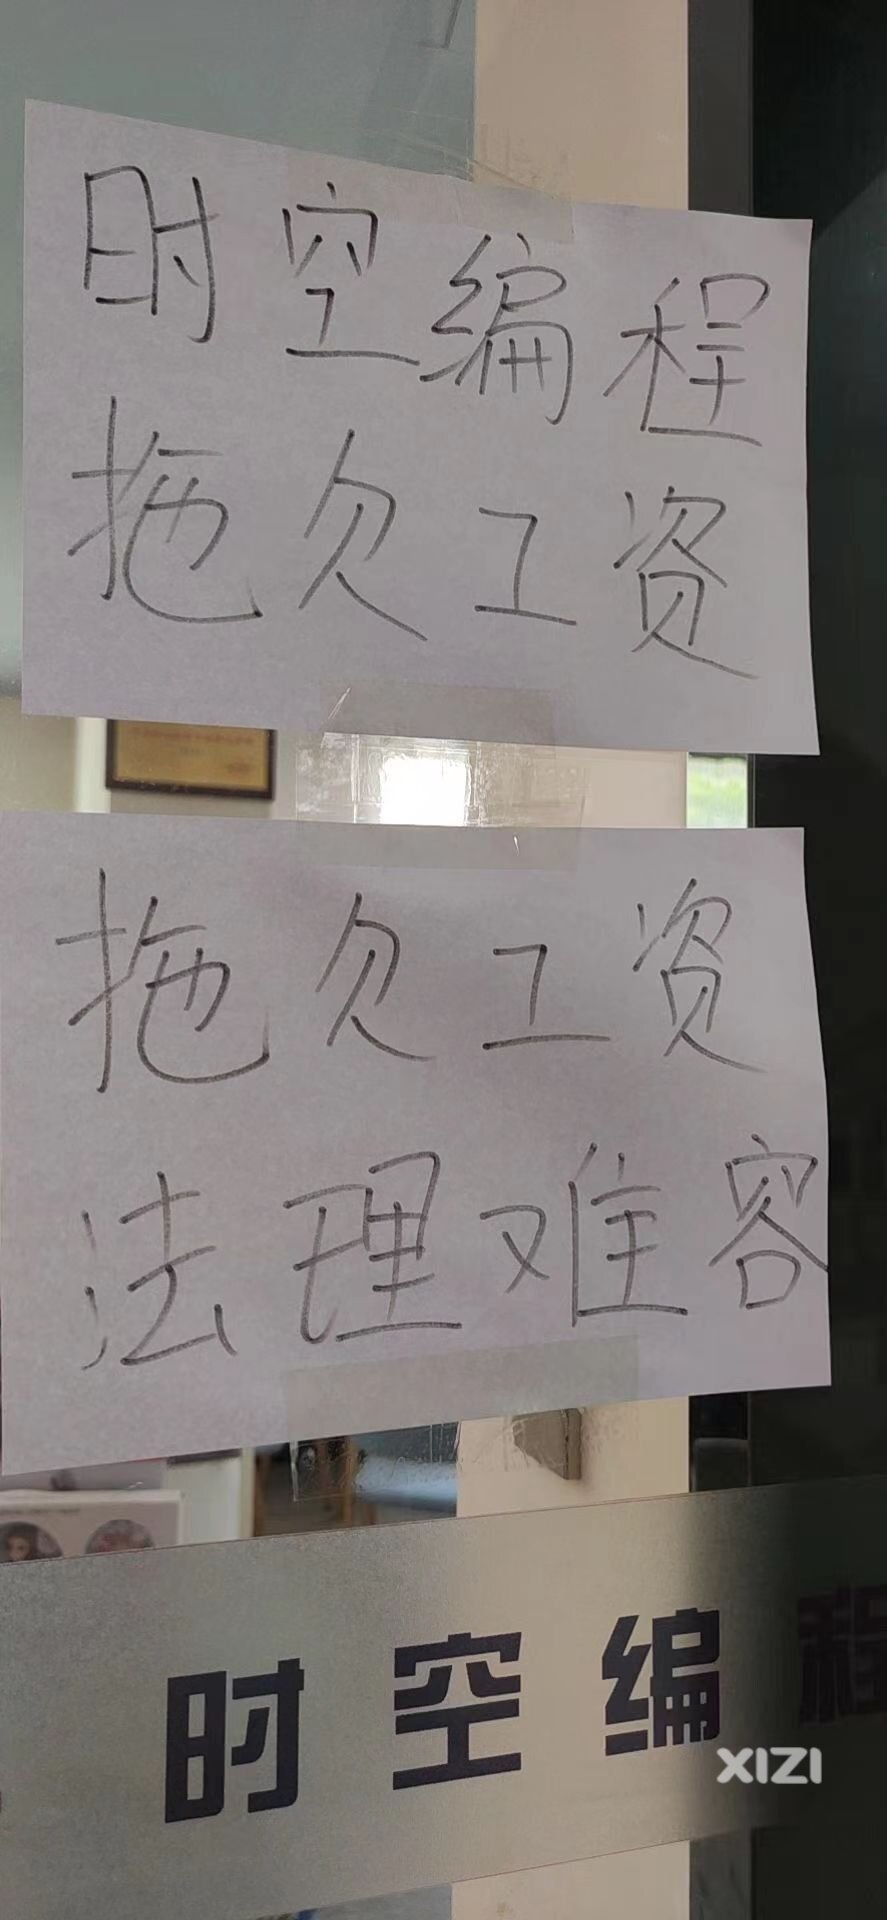 时空编程
拖欠工资
拖欠工资
法理难容
时空编程
XIZI